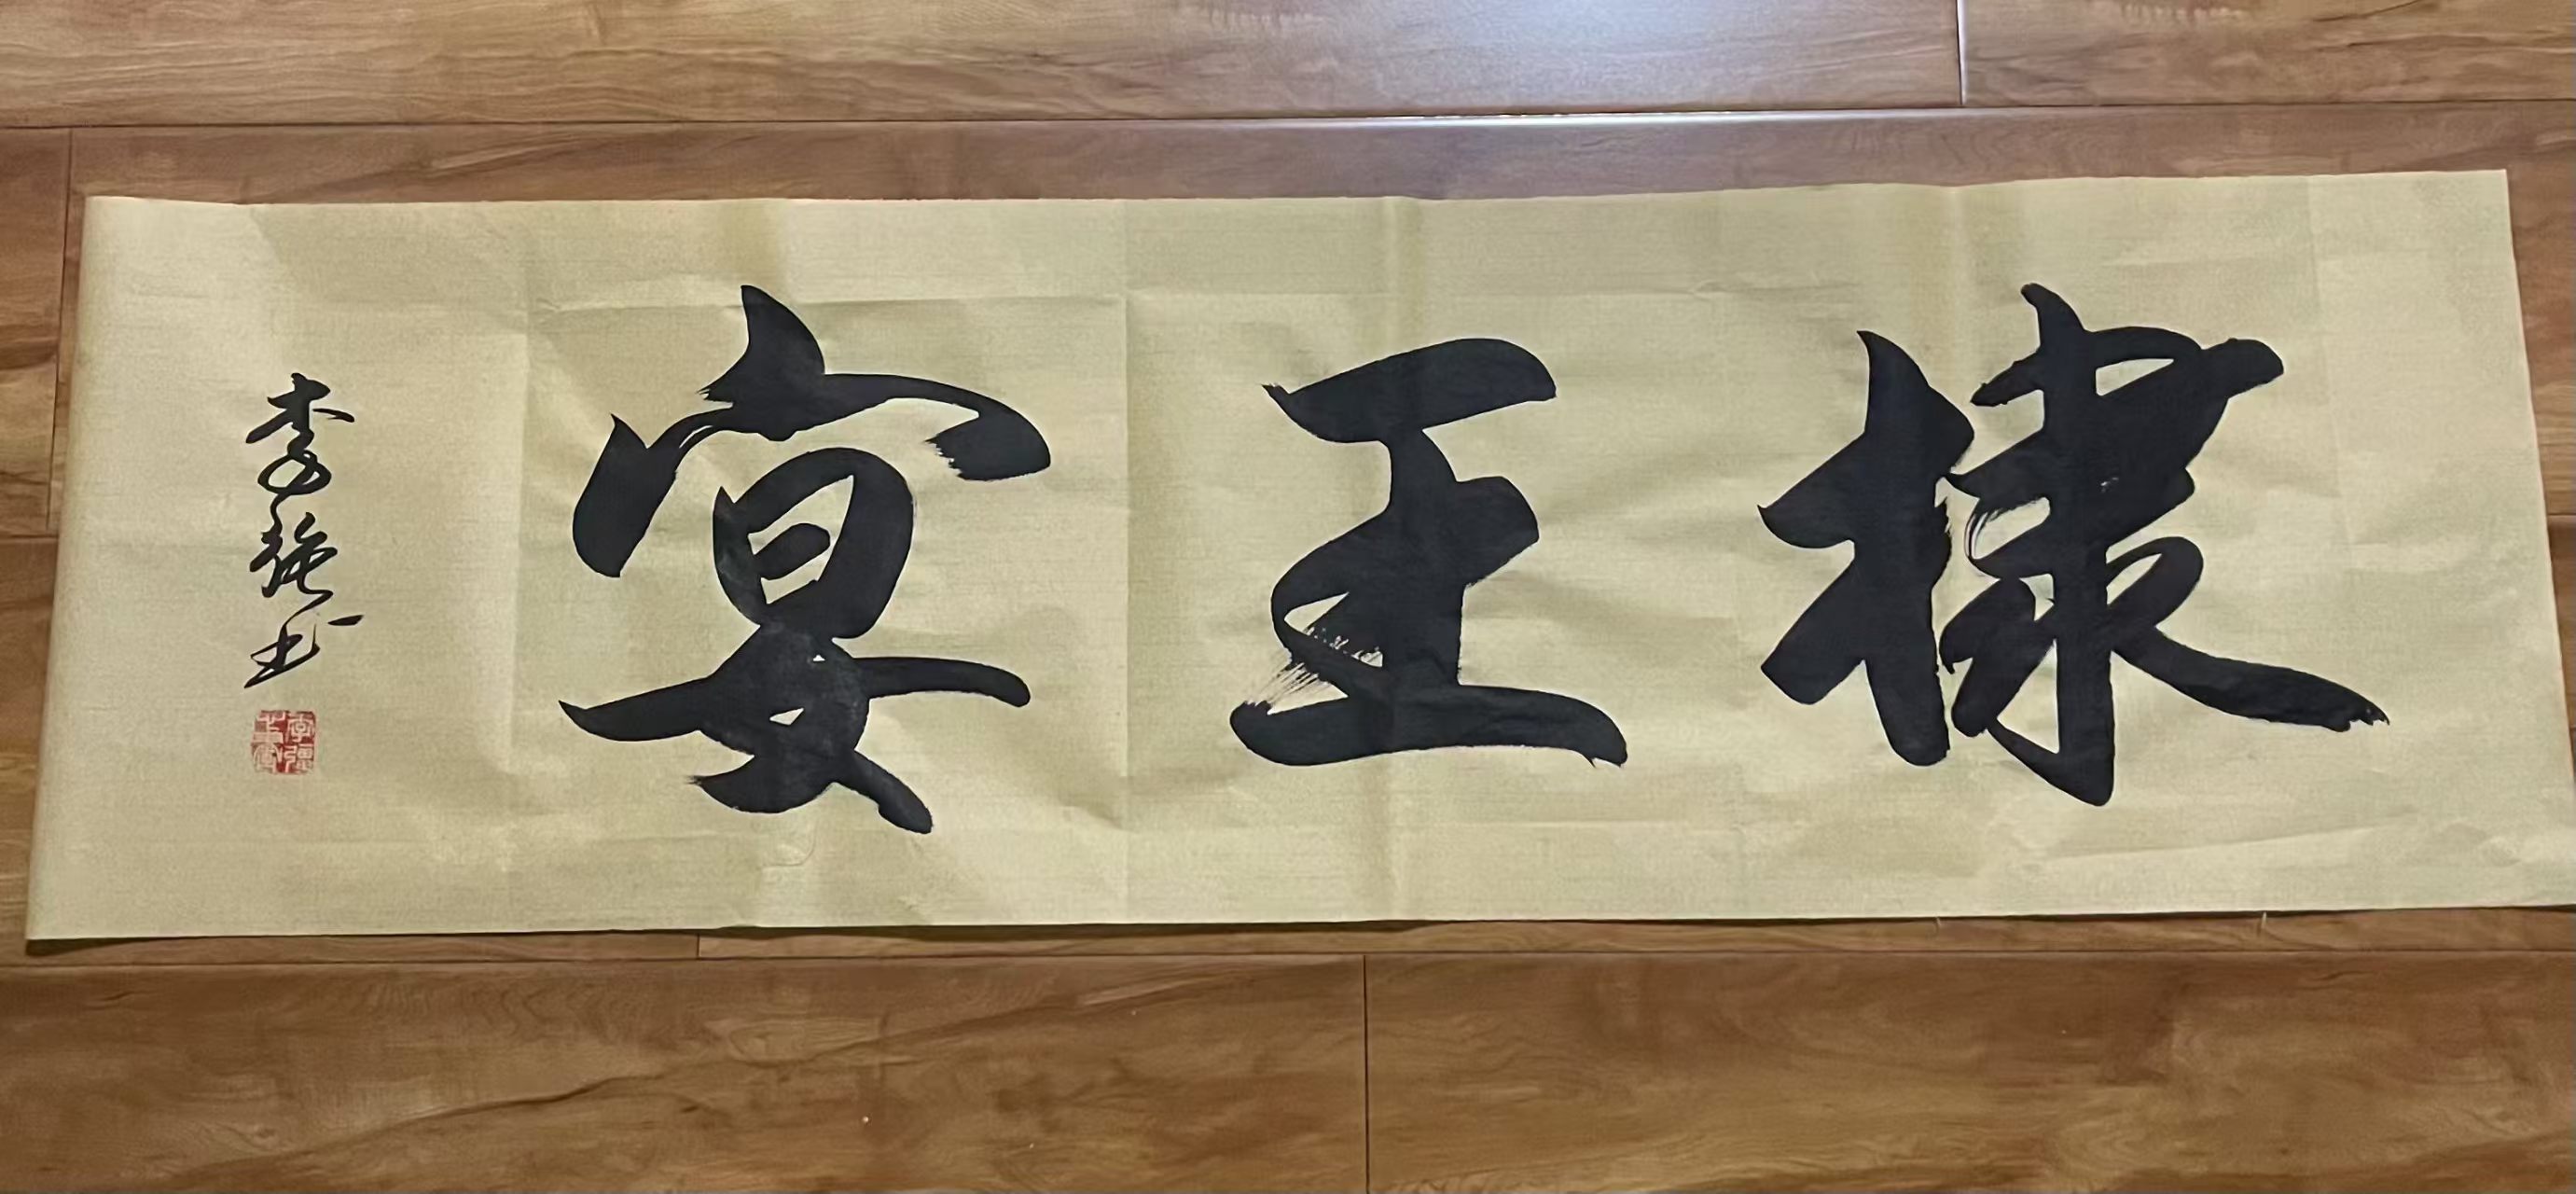 棣王宴
李强书